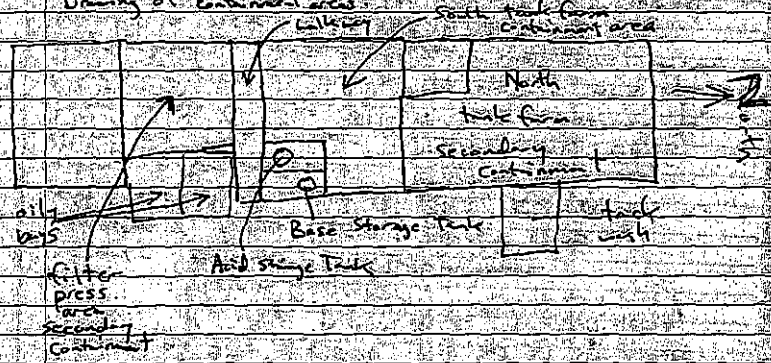 Drawing of containment areas
walkway
South tank farm
containment area
North
tank farm
secondary
containment
N
oily
bays
Base Storage Tank
Acid storage Tank
filter
press
area
secondary
containment
wash